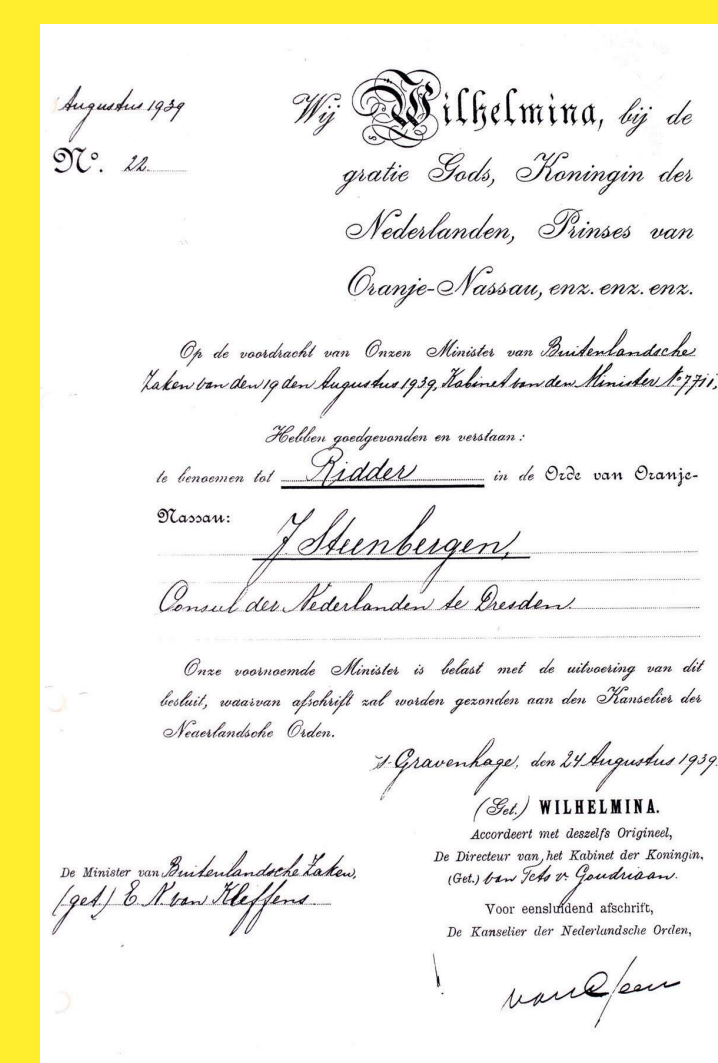 Augustus 1939
Nº. 22
Wij Wilhelmina, bij de
gratie Gods, Koningin der
Nederlanden, Prinses van
Oranje-Nassau, enz. enz. enz.
Op de voordracht van Onzen Minister van Buitenlandsche
Zaken van den 19 den Augustus 1939, Kabinet van den Minister Nº 7711,
Hebben goedgevonden en verstaan:
te benoemen tot Ridder in de Orde van Oranje-
Nassau:
J Steenbergen,
Consul der Nederlanden te Dresden.
Onze voornoemde Minister is belast met de uitvoering van dit
besluit, waarvan afschrift zal worden gezonden aan den Kanselier der
Nederlandsche Orden.
's-Gravenhage, den 24 Augustus 1939.
(Get.) WILHELMINA.
Accordeert met deszelfs Origineel,
De Directeur van het Kabinet der Koningin,
(Get.) van Tets v. Goudriaan.
Voor eensluidend afschrift,
De Kanselier der Nederlandsche Orden,
De Minister van Buitenlandsche Zaken,
(get) E N van Kleffens